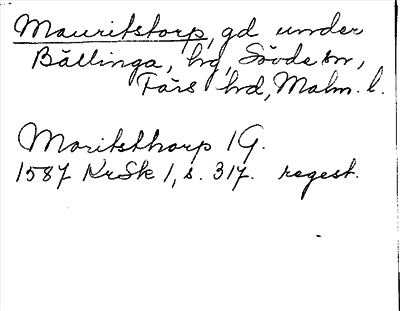 Mauritstorp, gd under
Bällinga, hg, Sövde sn,
Färs hd, Malm. l.
Moritsthorp 1 G.
1587 KrSk 1, s. 317. regest.